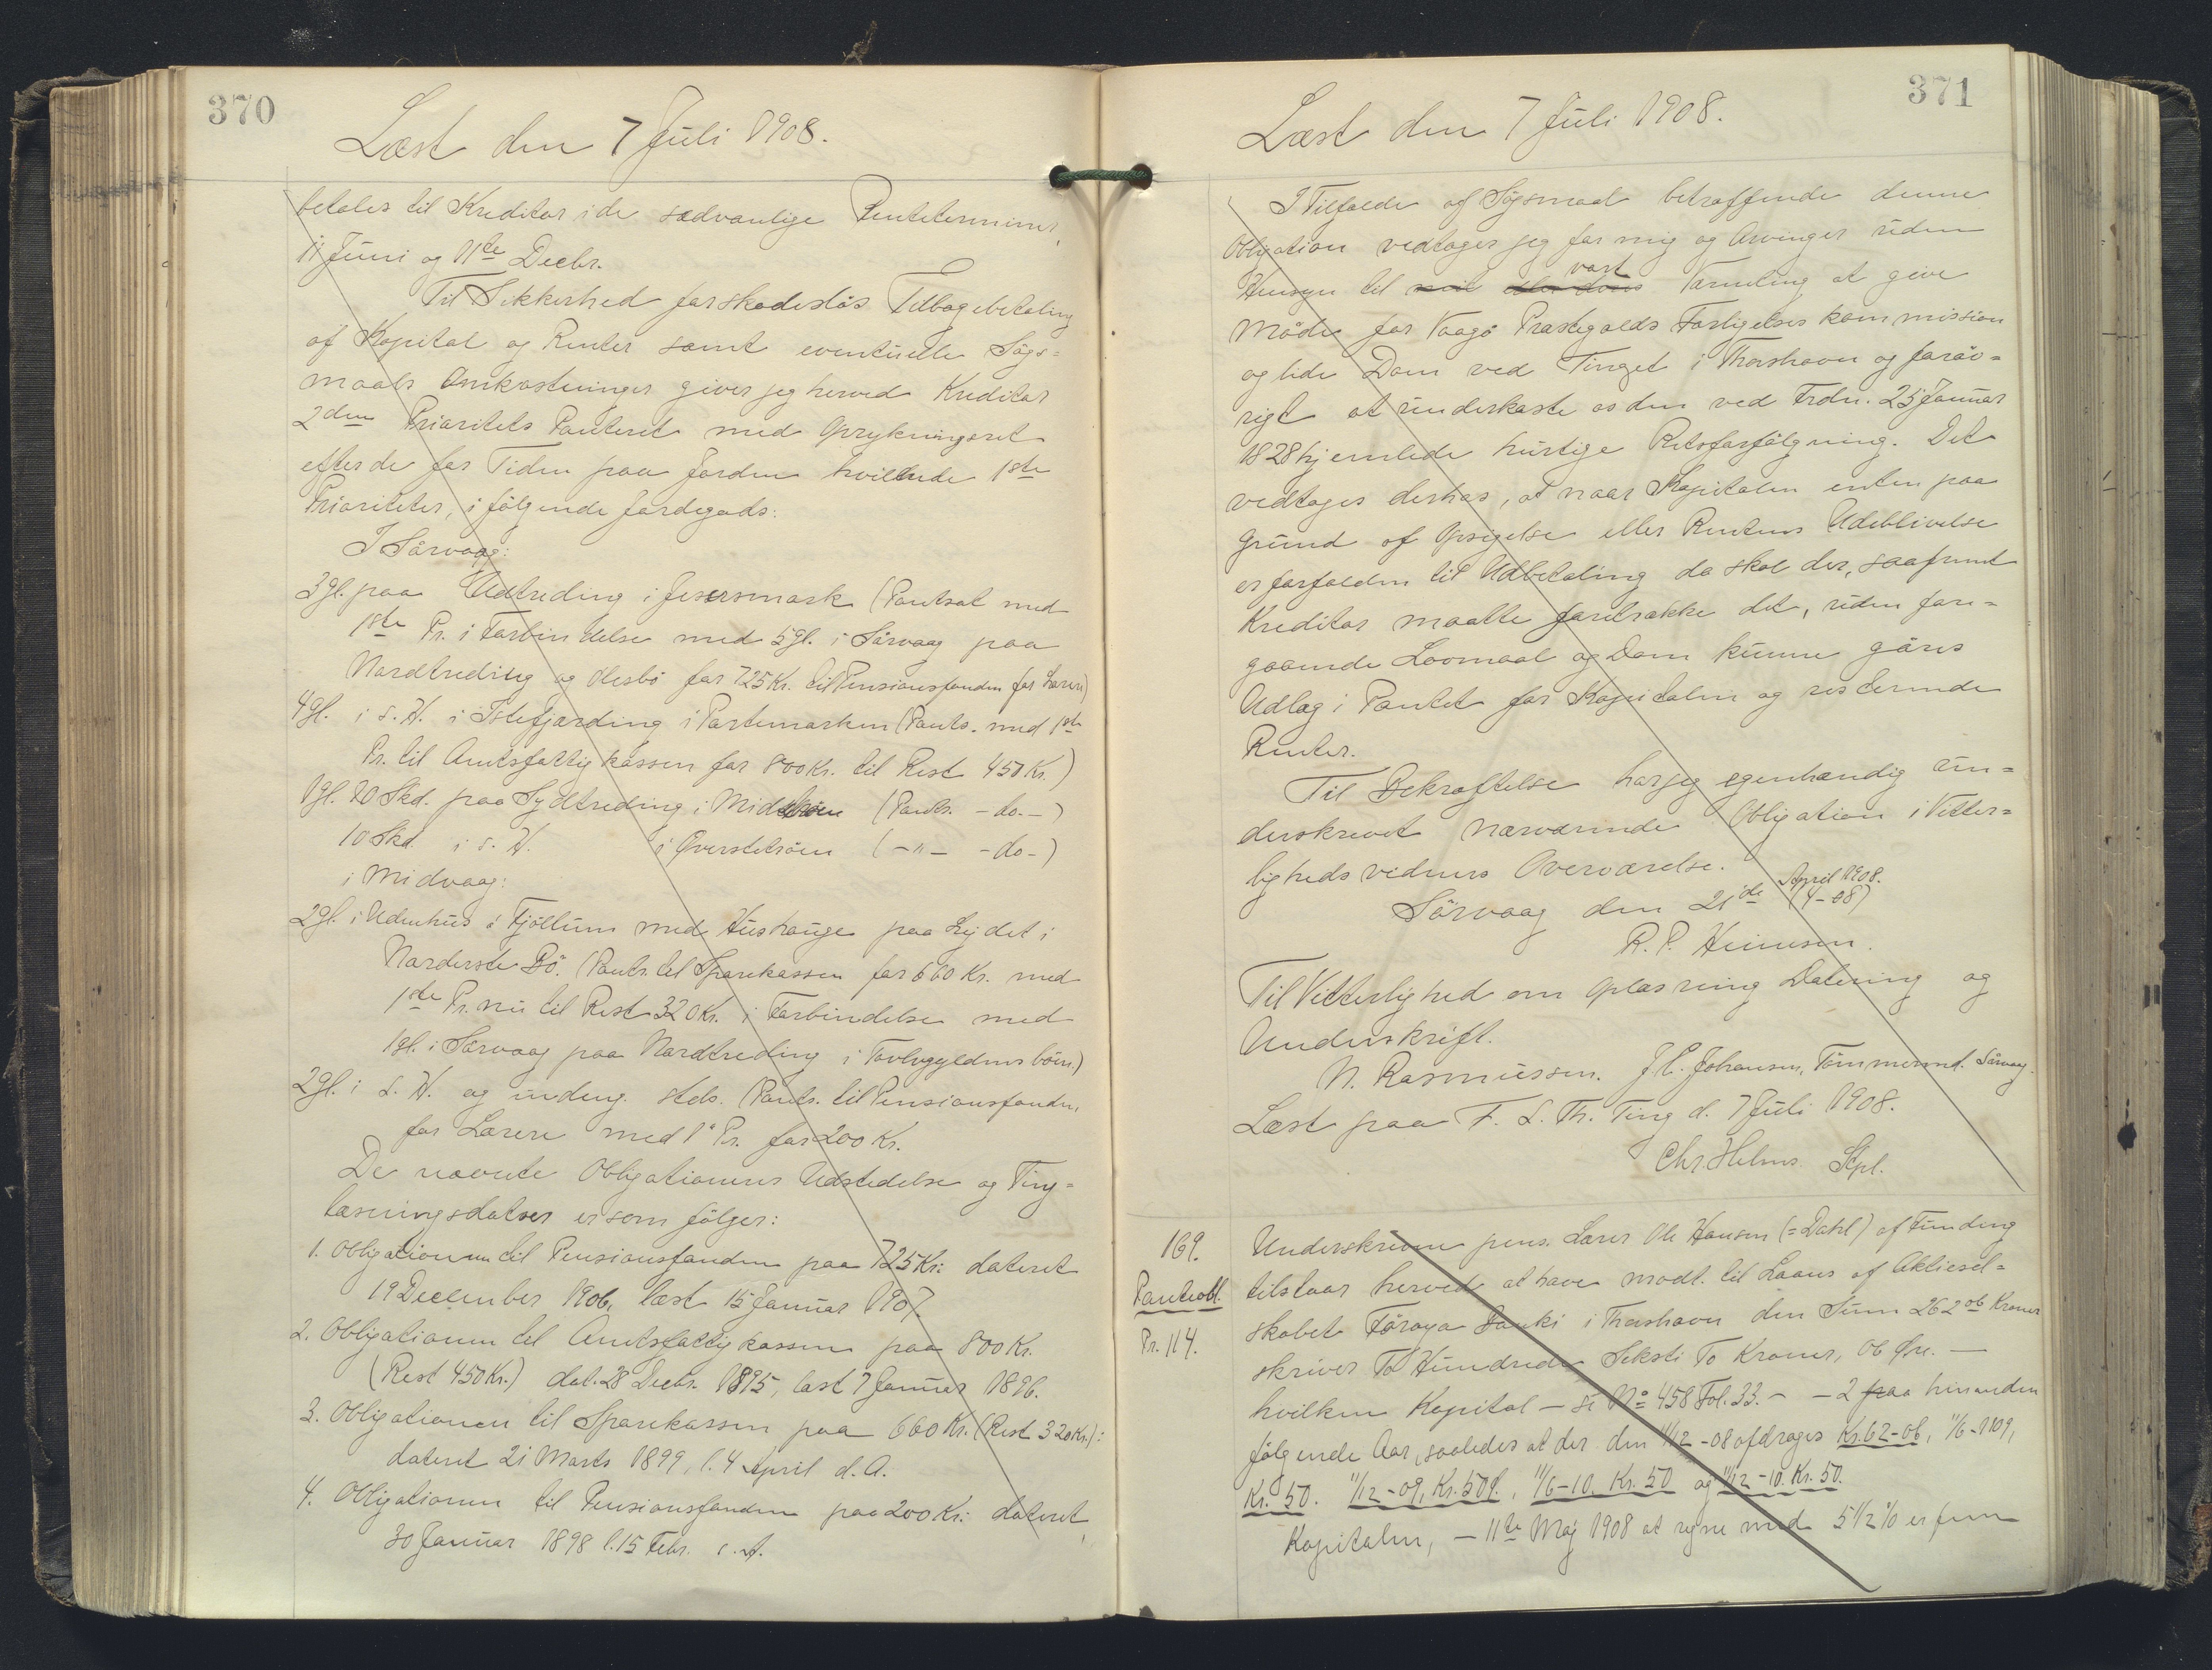 370
Læst den 7 Juli 1908.
betales til Kreditor i de sædvanlige Rentetermine,
11 Juni og 11te Decbr.
Til Sikkerhed for skadeslös Tilbagebetaling
af Kapital og Renter samt eventuelle Sögs=
maals Omkostninger giver jeg herved Kreditor
2den Prioritets Panteret med Oprykningsret
efter de for Tiden paa Jorden hvilende 1ste
Prioriteter, i fölgende Jordegods:
I Sörvaag:
3 gl. paa Udtreding i Jesersmark (Pantsat med
1ste Pr. i Forbindelse med 5 gl. i Sörvaag paa
Nordtreding og Olesbö for 725 Kr. til Pensionsfonden for Lærere)
4 gl. i s. H. i Istefjording i Partemarken (Pants. med 1ste
Pr. til Amtsfattigkassen for 800 Kr. til Rest 450 Kr.)
1 gl. 10 Skd. paa Sydtreding i (Pants. - do. -)
10 Skd i s. H. i Överstetröen ( - " - - do -)
i Midvaag:
2 gl. i Udenhus á Fjöllum med Hushauge paa Lejdet i
Norderste Bö. (Pants. til Sparekassen for 660 Kr. med
1ste Pr. nu til Rest 320 Kr. i Forbindelse med
1 gl. i Sörvaag paa Nordtreding i Tovlvgyldens böen.)
2 gl. i s. H. og undeng. steds. (Pants. til Pensionsfonden,
for Lærere med 1' Pr. for 200 Kr.
De nævnte Obligationers Udstedelse og Ting=
læsningsdatoer er som fölger:
1. Obligationen til Pensionsfonden paa 725 Kr: dateret
19 December 1906, læst 15 Januar 1907.
2. Obligationen til Amtsfattigkassen paa 800 Kr.
(Rest 450 Kr.) dat. 28 Decbr. 1895, læst 7 Januar 1896.
3. Obligationen til Sparekassen paa 660 Kr. (Rest 320 Kr.):
dateret 21 Marts 1899, l. 4 April d. A.
4. Obligationen til Pensionsfonden paa 200 Kr: dateret
30 Januar 1898 l. 15 Febr. s. A.
371
Læst den 7 Juli 1908.
I Tilfælde af Sögsmaal betræffende denne
Obligation vedtager jeg for mig og Arvinger uden
Hensyn til mit eller deres vort Værneting at give
Möde for Vaagö Præstegjælds Forligelses kommission
og lide Dom ved Tinget i Thorshavn og foröv=
rigt at underkaste os den ved Frdn. 25 Januar
1828 hjemlede hurtige Retsforfölgning. Det
vedtages derhos, at naar Kapitalen enten paa
Grund af Opsigelse eller Rentens Udeblivelse
er forfalden til Udbetaling da skal der, saafremt
Kreditor maatte foretrække det, uden fore=
gaaende Lovmaal og Dom kunne göres
Udlæg i Pantet for Kapitalen og resterende
Renter.
Til Bekræftelse har jeg egenhændig un=
derskrevet nærværende Obligation i Vitter=
ligheds vidners Overværelse.
Sörvaag den 21de April 1908.
(4-08)
R. P. Heinesen.
Til Vitterlighed om Oplæsning Datering og
Underskrift.
N. Rasmussen. J. C. Johansen, Tömmermd. Sörvaag.
Læst paa F. S. Th. Ting d. 7 Juli 1908.
Chr Helms Stpl.
169.
Panteobl.
Pr. 114.
Underskrevne pens. Lærer Ole Hansen (=Dahl) af Funding
tilstaar herved at have modt. til Laans af Aktiesel=
skabet Föroya Banki i Thorshavn den Sum 262 06 Kroner
skriver To Hundrede Seksti To Kroner, 06 Öre. -
hvilken Kapital - se No 458 Fol. 33. - - 2 paa hinanden
fölgende Aar, saaledes at der den 11/12 -08 afdrages Kr. 62-06, 11/6-1909,
Kr. 50. 11/12 -09, Kr. 50. 11/6-10. Kr. 50 og 11/12 -10. Kr. 50.
Kapitalen, - 11te Maj 1908 at regne med 5 1/2 % er fem